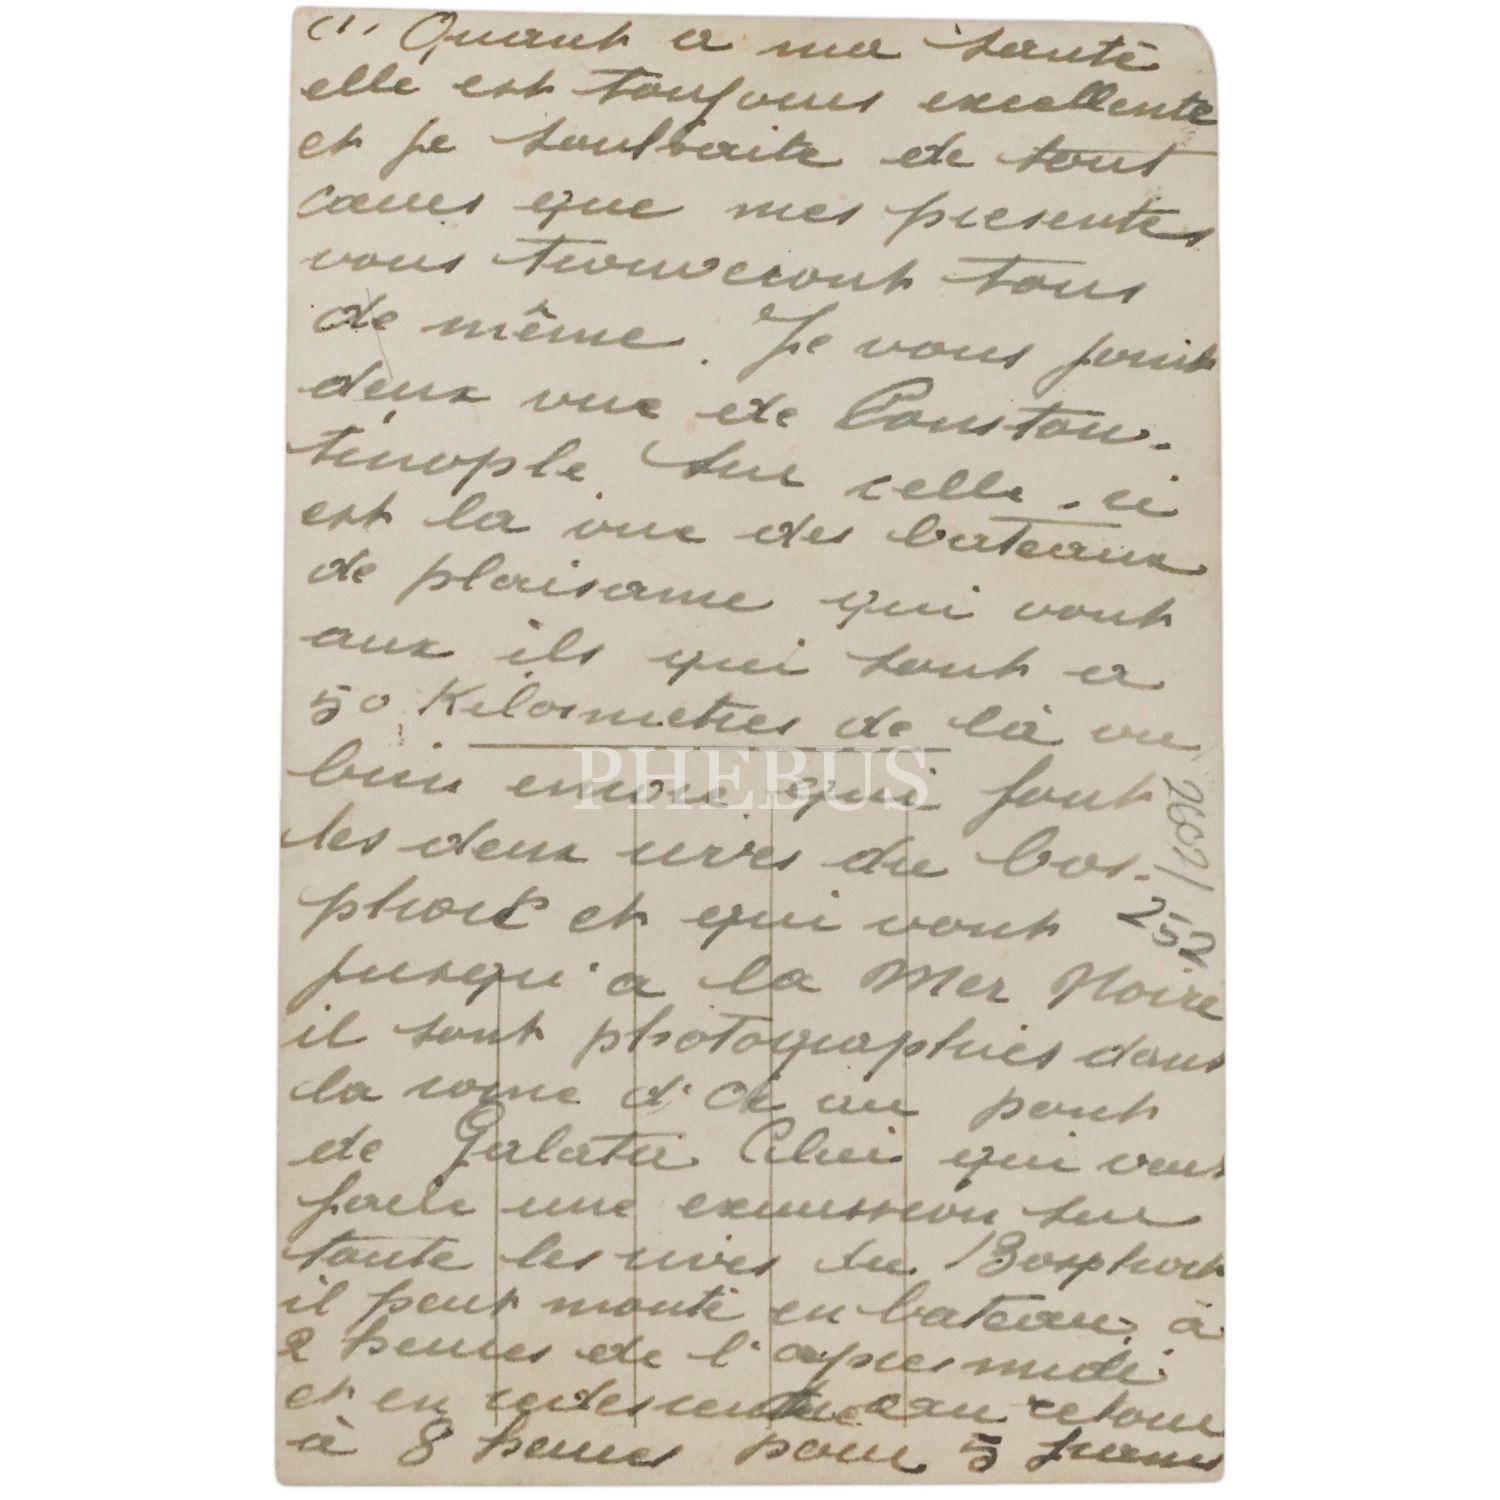 Quant a ma santé
elle est toujours excellente
et je souhaite de tout
cœur que mes presentes
vous trouveront tous
de même. Je vous joint
deux vue de Constan-
tinople sur celle-ci
est la vue des bateaux
de plaisance qui vont
aux ils qui sont a
50 Kilometres de là ou
bien encore qui font
les deux rives du bos-
phore et qui vont
jusqu'a la Mer Noire
il sont photographies dans
la corne d'Or au pont
de Galata Celui qui veut
faire une excurssion sur
toute les rives du Bosphore
il peut monté en bateau à
2 heures de l'apres midi
et en redescendre au retour
à 8 heures pour 5 francs
2607/
252
PHEBUS